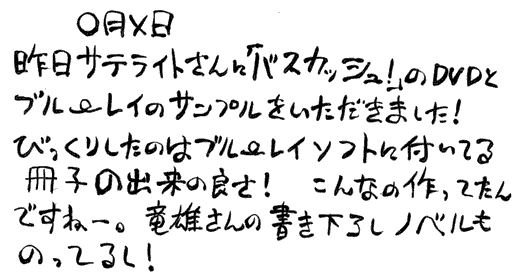 〇月×日
昨日サテライトさんに「バスカッシュ!」のDVDと
ブルーレイのサンプルをいただきました!
びっくりしたのはブルーレイソフトに付いてる
冊子の出来の良さ! こんなの作ってたん
ですねー。竜雄さんの書き下ろしノベルも
のってるし!